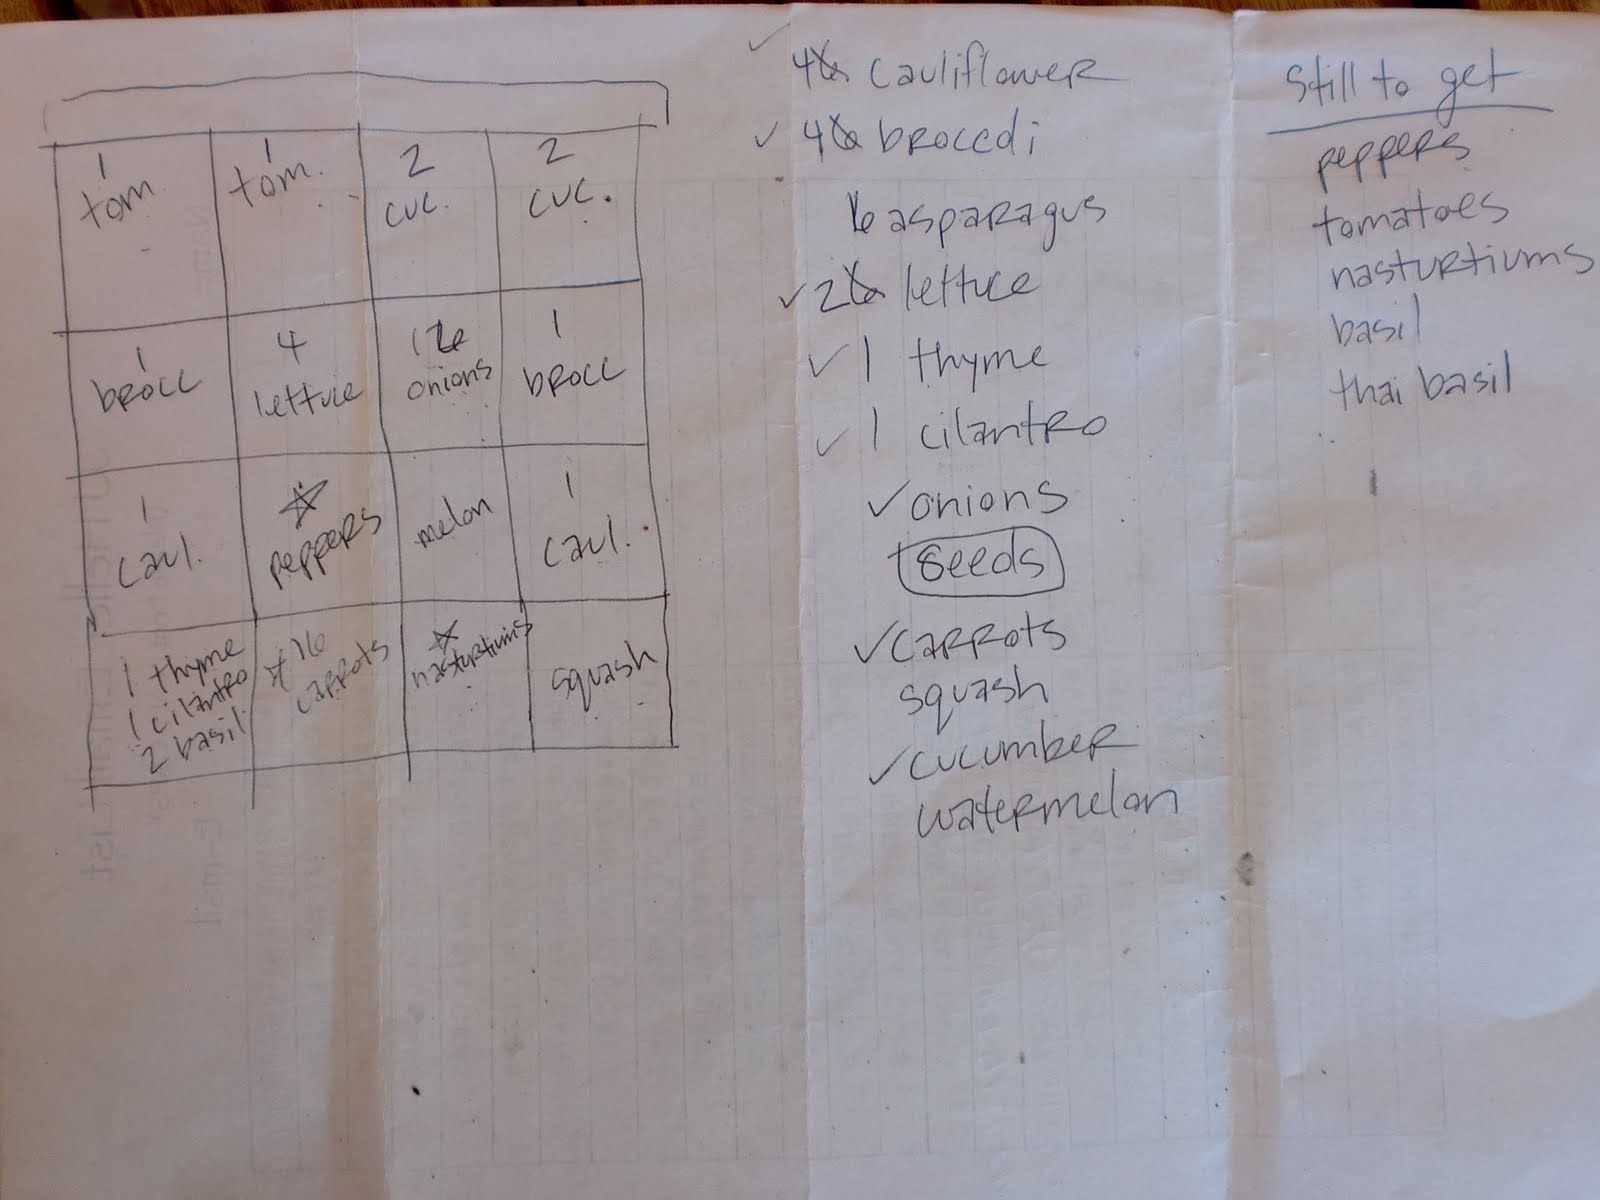 1
tom.
1
tom.
2
cuc.
2
cuc.
1
brocc
4
lettuce
onions
1
brocc
1
caul.
peppers
melon
1
caul.
1 thyme
1 cilantro
2 basil
16
carrots
nasturtiums
squash
cauliflower
broccoli
asparagus
lettuce
1 thyme
1 cilantro
onions
seeds
carrots
squash
cucumber
watermelon
Still to get
peppers
tomatoes
nasturtiums
basil
thai basil